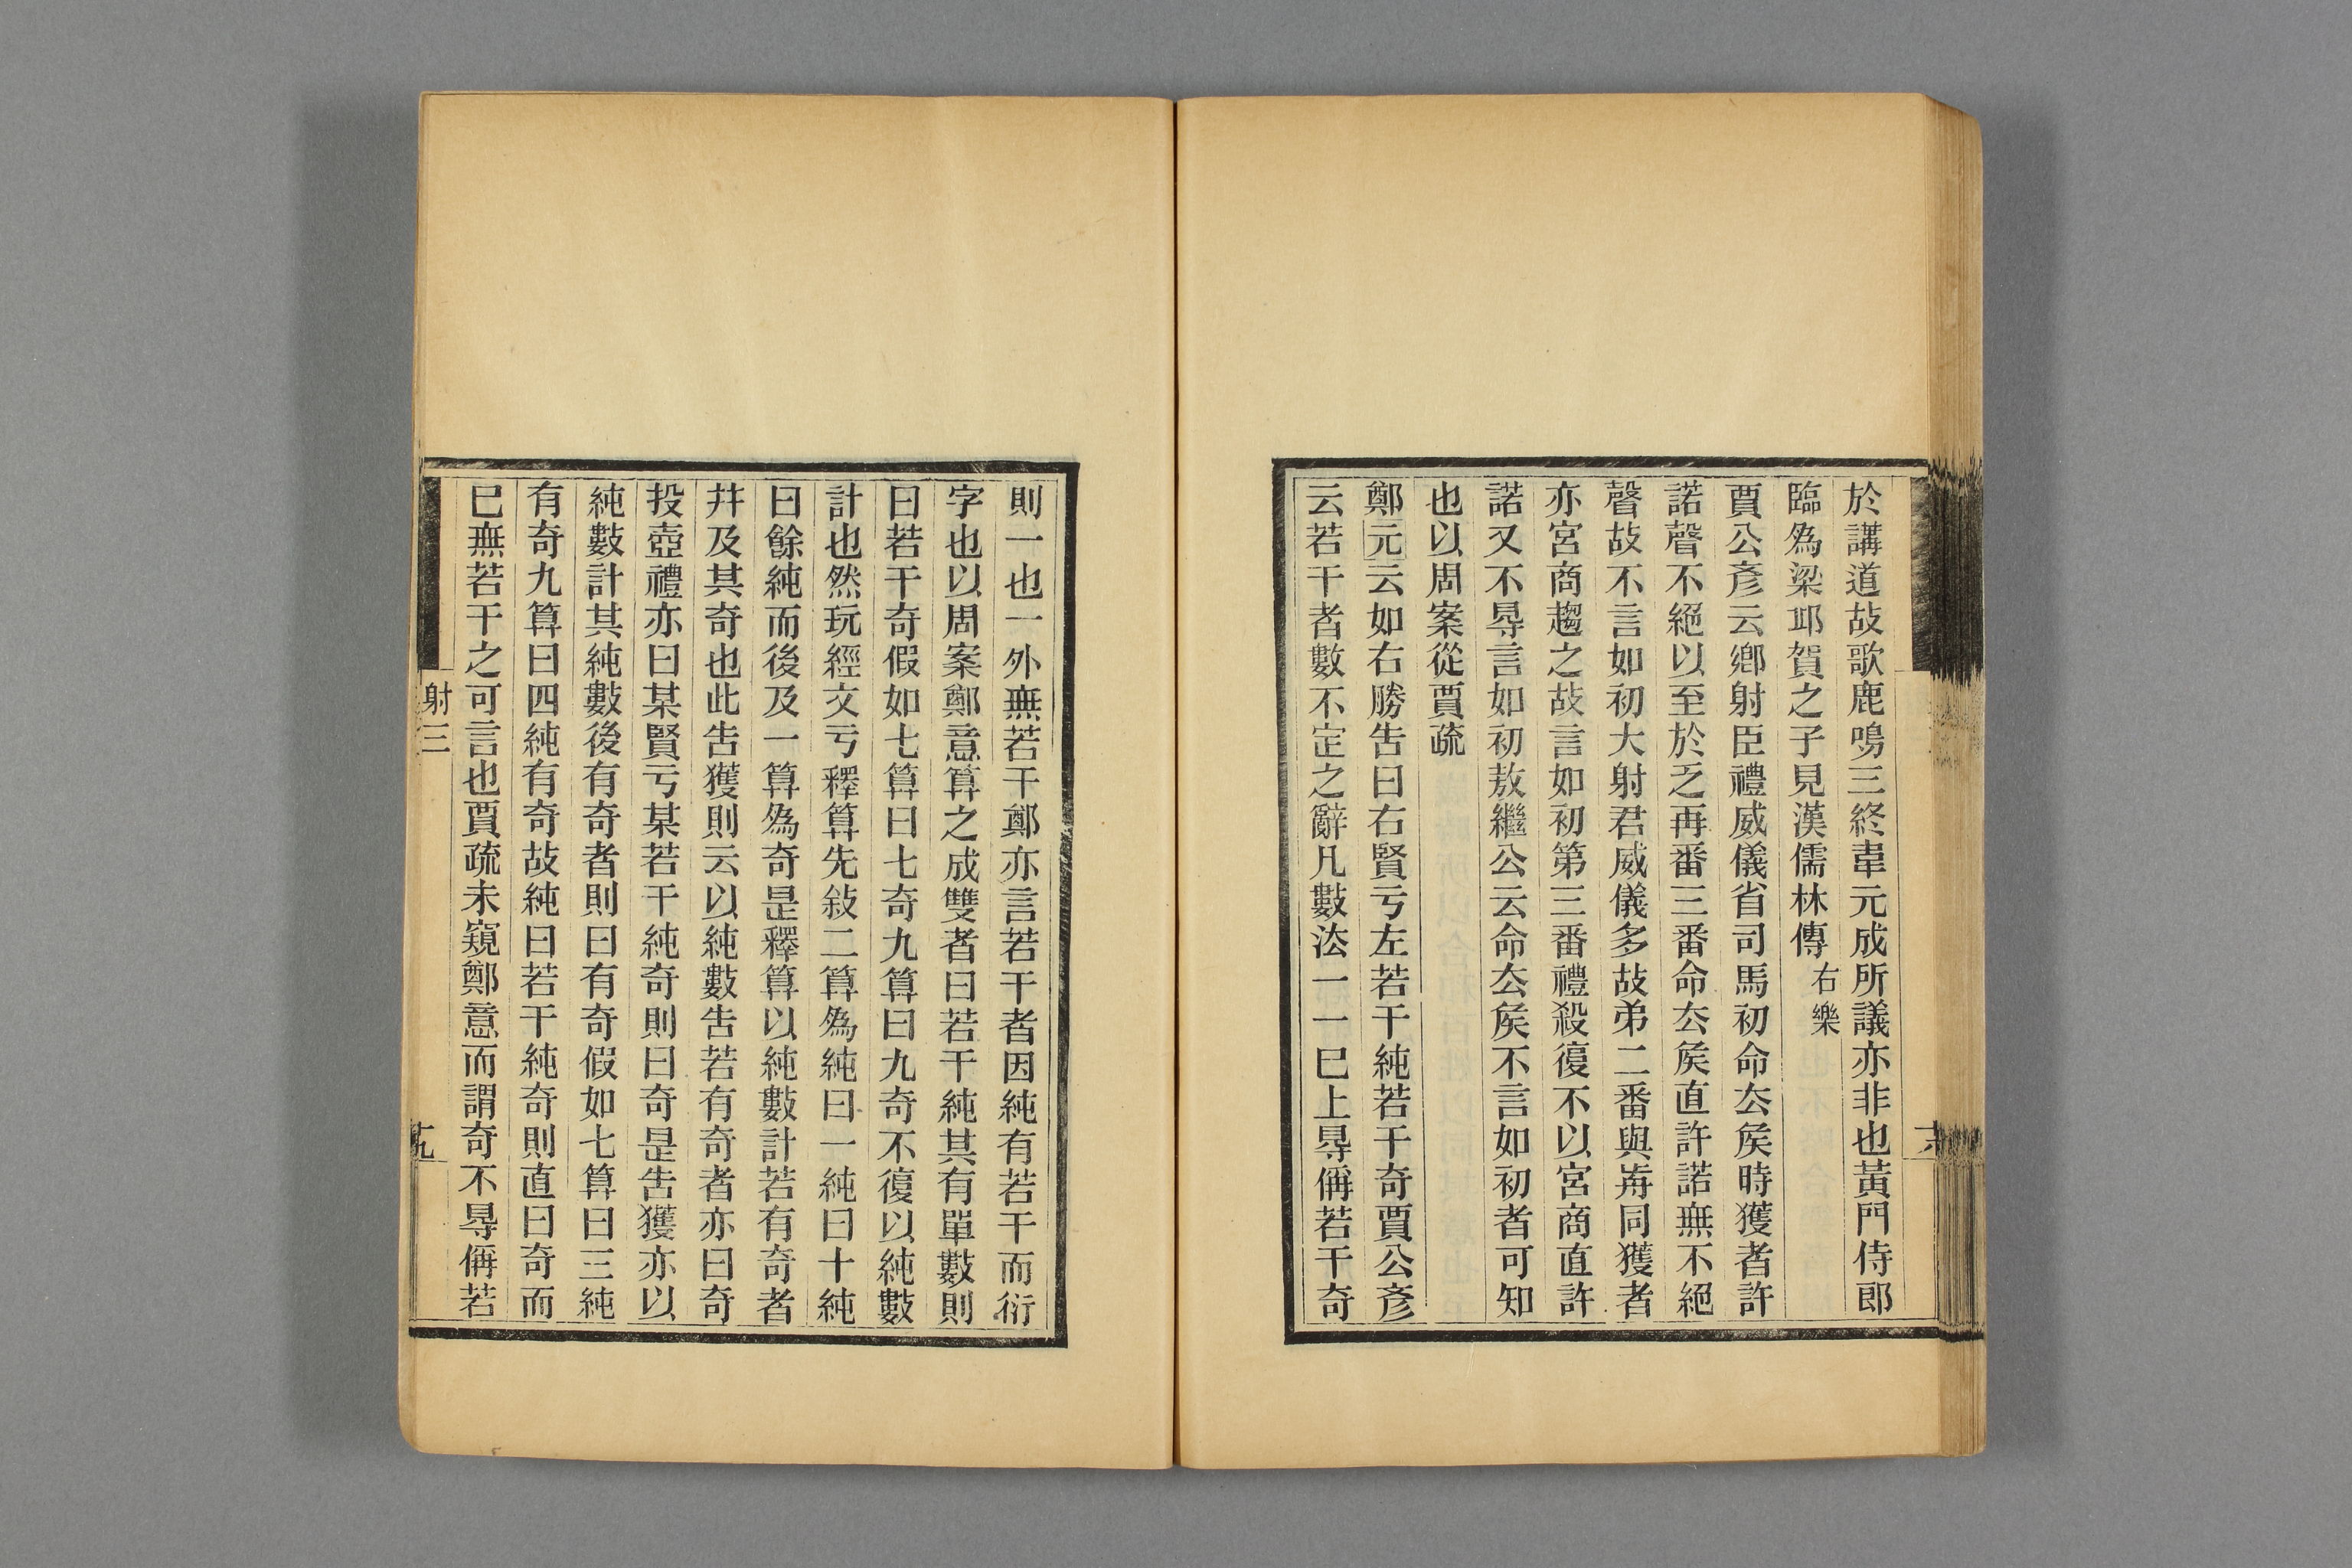 於講道故歌鹿鳴三終韋元成所議亦非也黃門侍郎
臨為梁邱賀之子見漢儒林傳右樂
賈公彥云鄉射臣禮威儀省司馬初命去矦時獲者許
諾聲不絕以至於乏再番三番命去矦直許諾無不絕
聲故不言如初大射君威儀多故弟二番與歬同獲者
亦宮商趨之故言如初第三番禮殺復不以宮商直許
諾又不㝵言如初敖繼公云命去矦不言如初者可知
也以周案從賈疏
鄭元云如右勝告曰右賢亏左若干純若干奇賈公彥
云若干者數不定之辭凡數法一一已上㝵偁若干奇
則一也一外無若干鄭亦言若干者因純有若干而衍
字也以周案鄭意算之成雙者曰若干純其有單數則
曰若干奇假如七算曰七奇九算曰九奇不復以純數
計也然玩經文亏釋算先敍二算為純曰一純曰十純
曰餘純而後及一算為奇是釋算以純數計若有奇者
幷及其奇也此告獲則云以純數告若有奇者亦曰奇
投壺禮亦曰某賢亏某若干純奇則曰奇是告獲亦以
純數計其純數後有奇者則曰有奇假如七算曰三純
有奇九算曰四純有奇故純曰若干純奇則直曰奇而
已無若干之可言也賈疏未窺鄭意而謂奇不㝵偁若
射三
十九